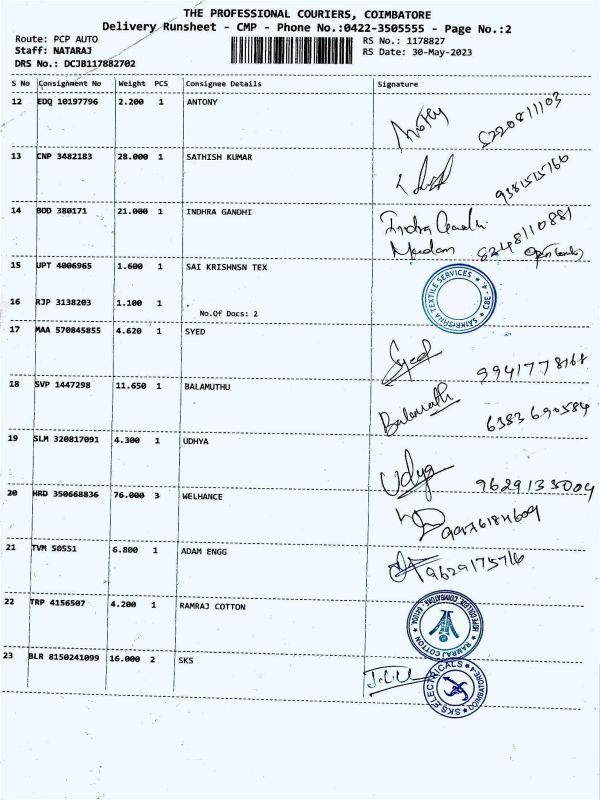 THE PROFESSIONAL COURIERS, COIMBATORE
Delivery Runsheet - CMP - Phone No.:0422-3505555 - Page No.:2
Route: PCP AUTO
Staff: NATARAJ
DRS No.: DCJB117882702
RS No.: 1178827
RS Date: 30-May-2023
S No Consignment No Weight PCS Consignee Details Signature
12 EDQ 10197796 2.200 1 ANTONY
13 CNP 3482183 28.000 1 SATHISH KUMAR
14 BOD 380171 21.000 1 INDHRA GANDHI Indra Gandhi
Madam 8248110881
15 UPT 4006965 1.600 1 SAI KRISHNSN TEX
SAIKRISHNA TEXTILE SERVICES CBE - 4.
16 RJP 3138203 1.100 1
No.Of Docs: 2
17 MAA 570845855 4.620 1 SYED Syed
18 SVP 1447298 11.650 1 BALAMUTHU 6383690584
19 SLM 320817091 4.300 1 UDHYA Udya 9629133004
20 HRD 350668836 76.000 3 WELHANCE
21 TVM 50551 6.800 1 ADAM ENGG 9629175716
22 TRP 4156507 4.200 1 RAMRAJ COTTON
RAMRAJ COTTON
23 BLR 8150241099 16.000 2 SKS
SKS ELECTRICALS COIMBATORE-4